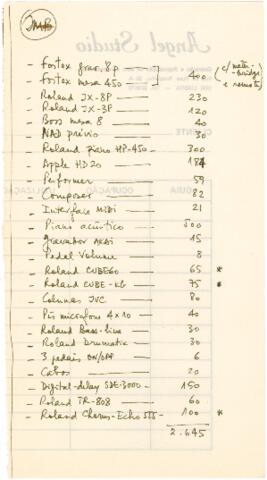 JMB
- Fostex grav. 8p
- Fostex mesa 450 — 400 (c/ meter-bridge e remote)
- Roland JX-8P — 230
- Roland JX-3P — 120
- Boss mesa 8 — 40
- NAD prévio — 30
- Roland piano HP-450 — 300
- Apple HD20 — 184
- Performer — 59
- Composer — 82
- Interface MIDI — 21
- Piano acústico — 500
- Gravador AKAI — 15
- Pedal Volume — 8
- Roland CUBE60 — 65 *
- Roland CUBE-KB — 75 *
- Colunas JVC — 80
- Pés microfone 4x10 — 40
- Roland Bass-line — 30
- Roland Drumatix — 30
- 3 pedais ON/OFF — 6
- Cabos — 20
- Digital-delay SDE-3000 — 150
- Roland TR-808 — 60
- Roland Chorus-Echo 555 — 100 *
2.645
Angel Studio